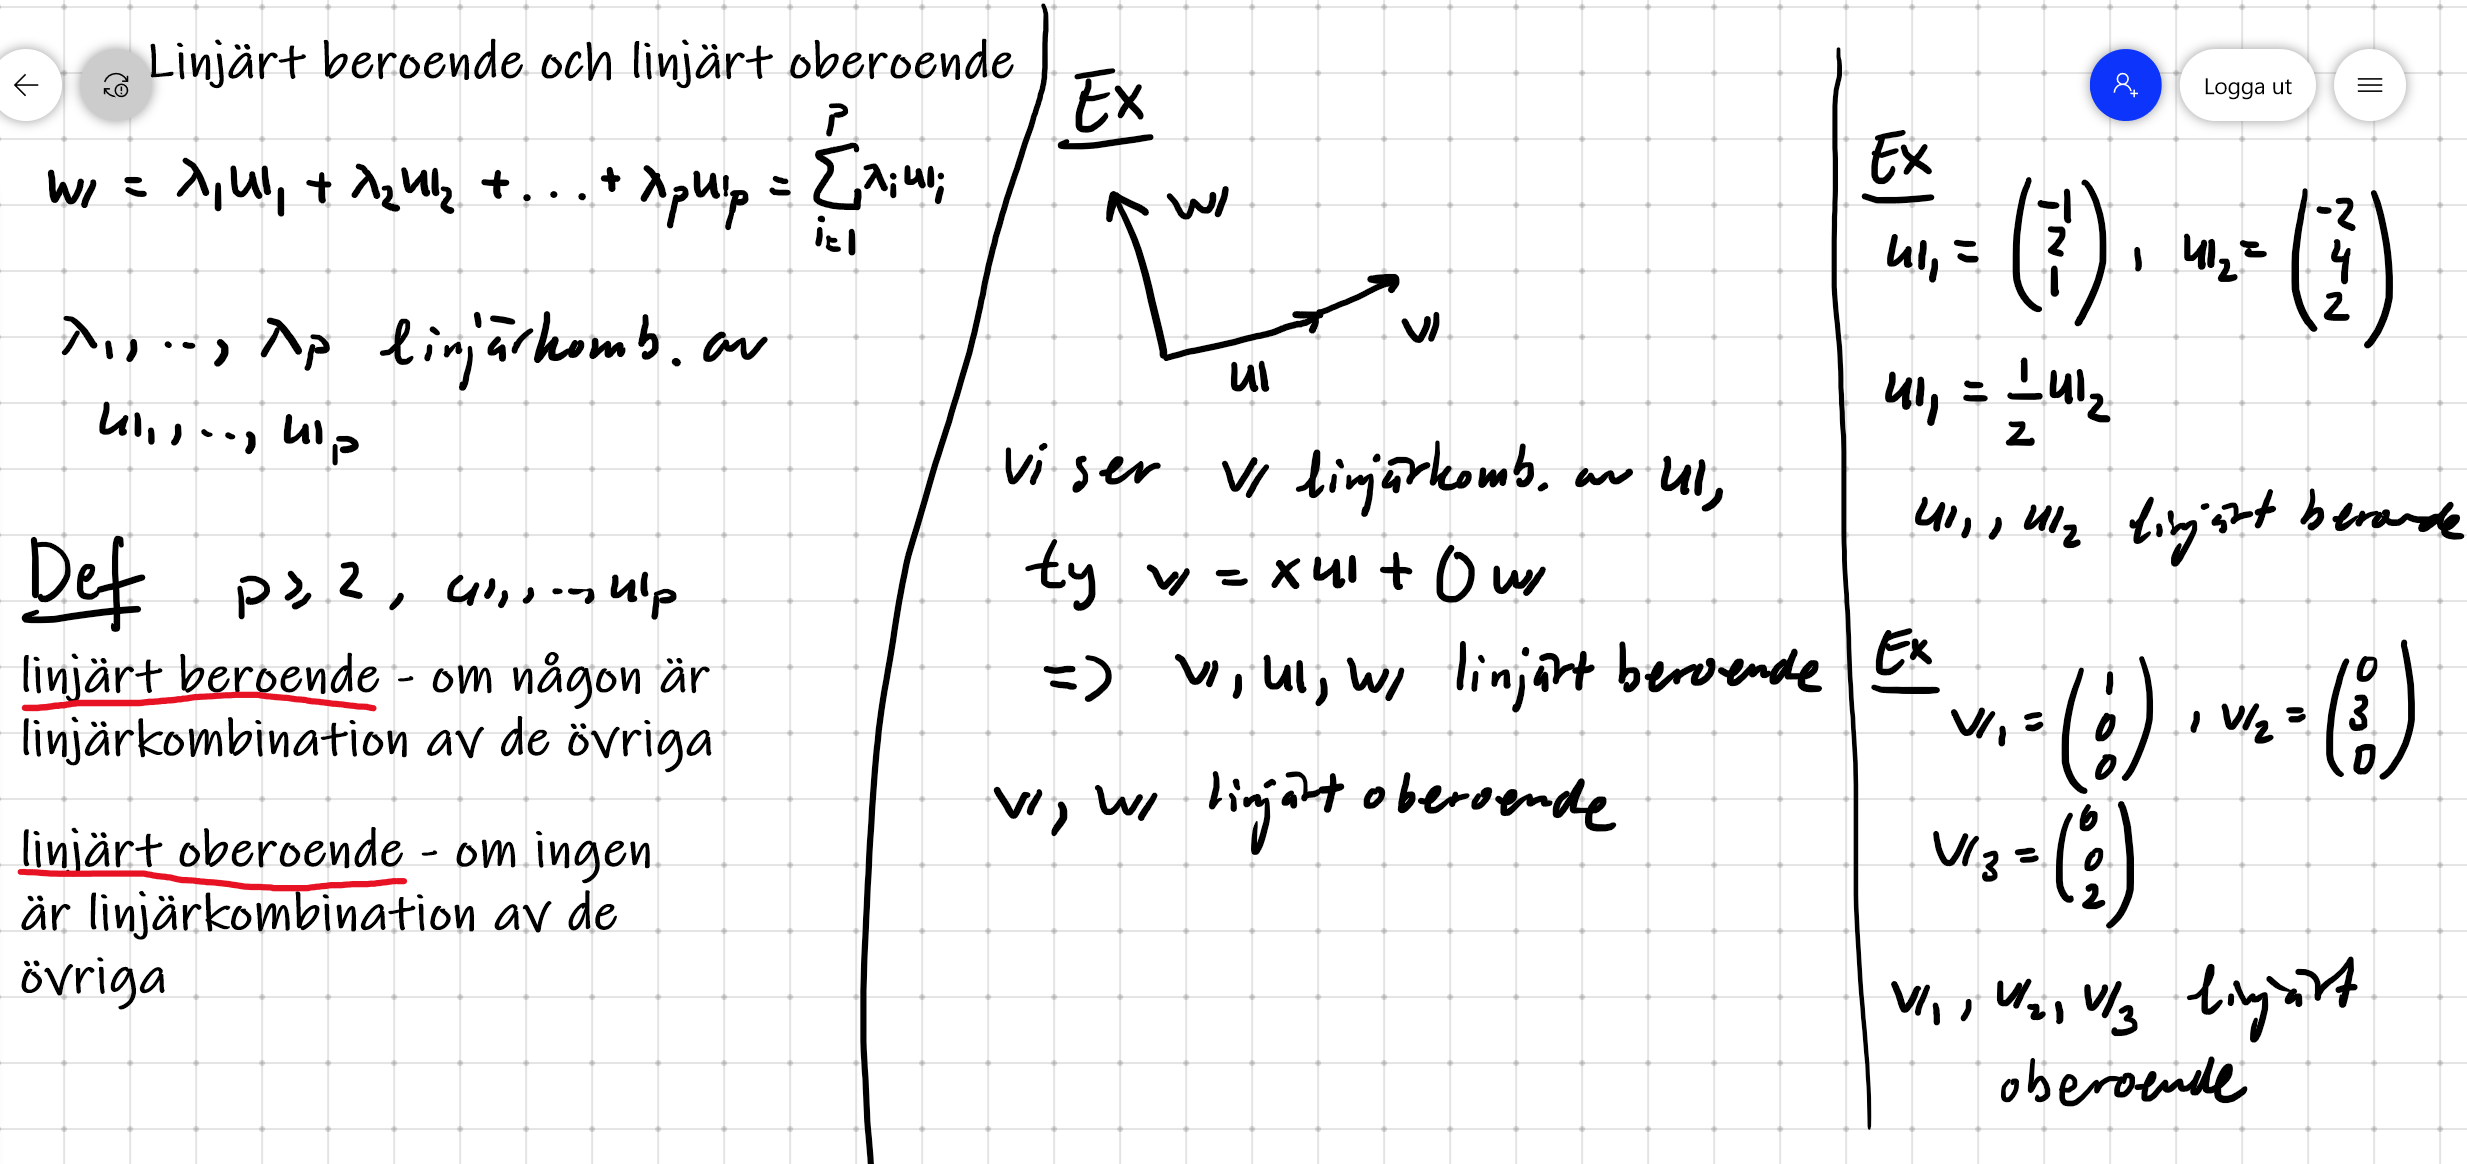 Linjärt beroende och linjärt oberoende
w = λ₁u₁ + λ₂u₂ + ... + λₚuₚ = ∑ᵢ₌₁ᵖ λᵢuᵢ
λ₁, .., λₚ linjärkomb. av
u₁, .., uₚ
Def p ≥ 2, u₁, .., uₚ
linjärt beroende - om någon är
linjärkombination av de övriga
linjärt oberoende - om ingen
är linjärkombination av de
övriga
Ex
w
v
u
Vi ser v linjärkomb. av u,
ty v = xu + 0w
=> v, u, w linjärt beroende
v, w linjärt oberoende
Logga ut
Ex
u₁ = (-1 2 1), u₂ = (-2 4 2)
u₁ = 1/2 u₂
u₁, u₂ linjärt beroende
Ex
v₁ = (1 0 0), v₂ = (0 3 0)
v₃ = (0 0 2)
v₁, v₂, v₃ linjärt
oberoende